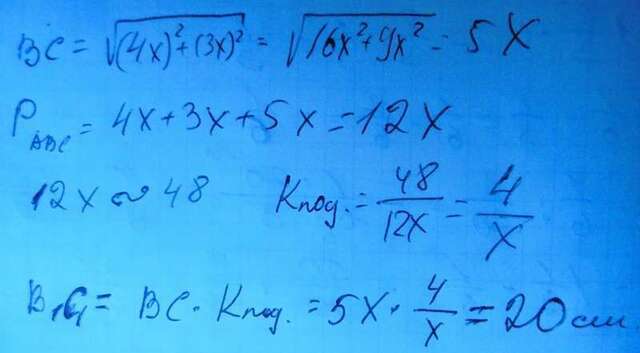 BC = √(4x)² + (3x)² = √16x² + 9x² = 5x
P_ABC = 4x + 3x + 5x = 12x
12x ~ 48 Kпод. = 48/12x = 4/x
B₁C₁ = BC · Kпод. = 5x · 4/x = 20 см